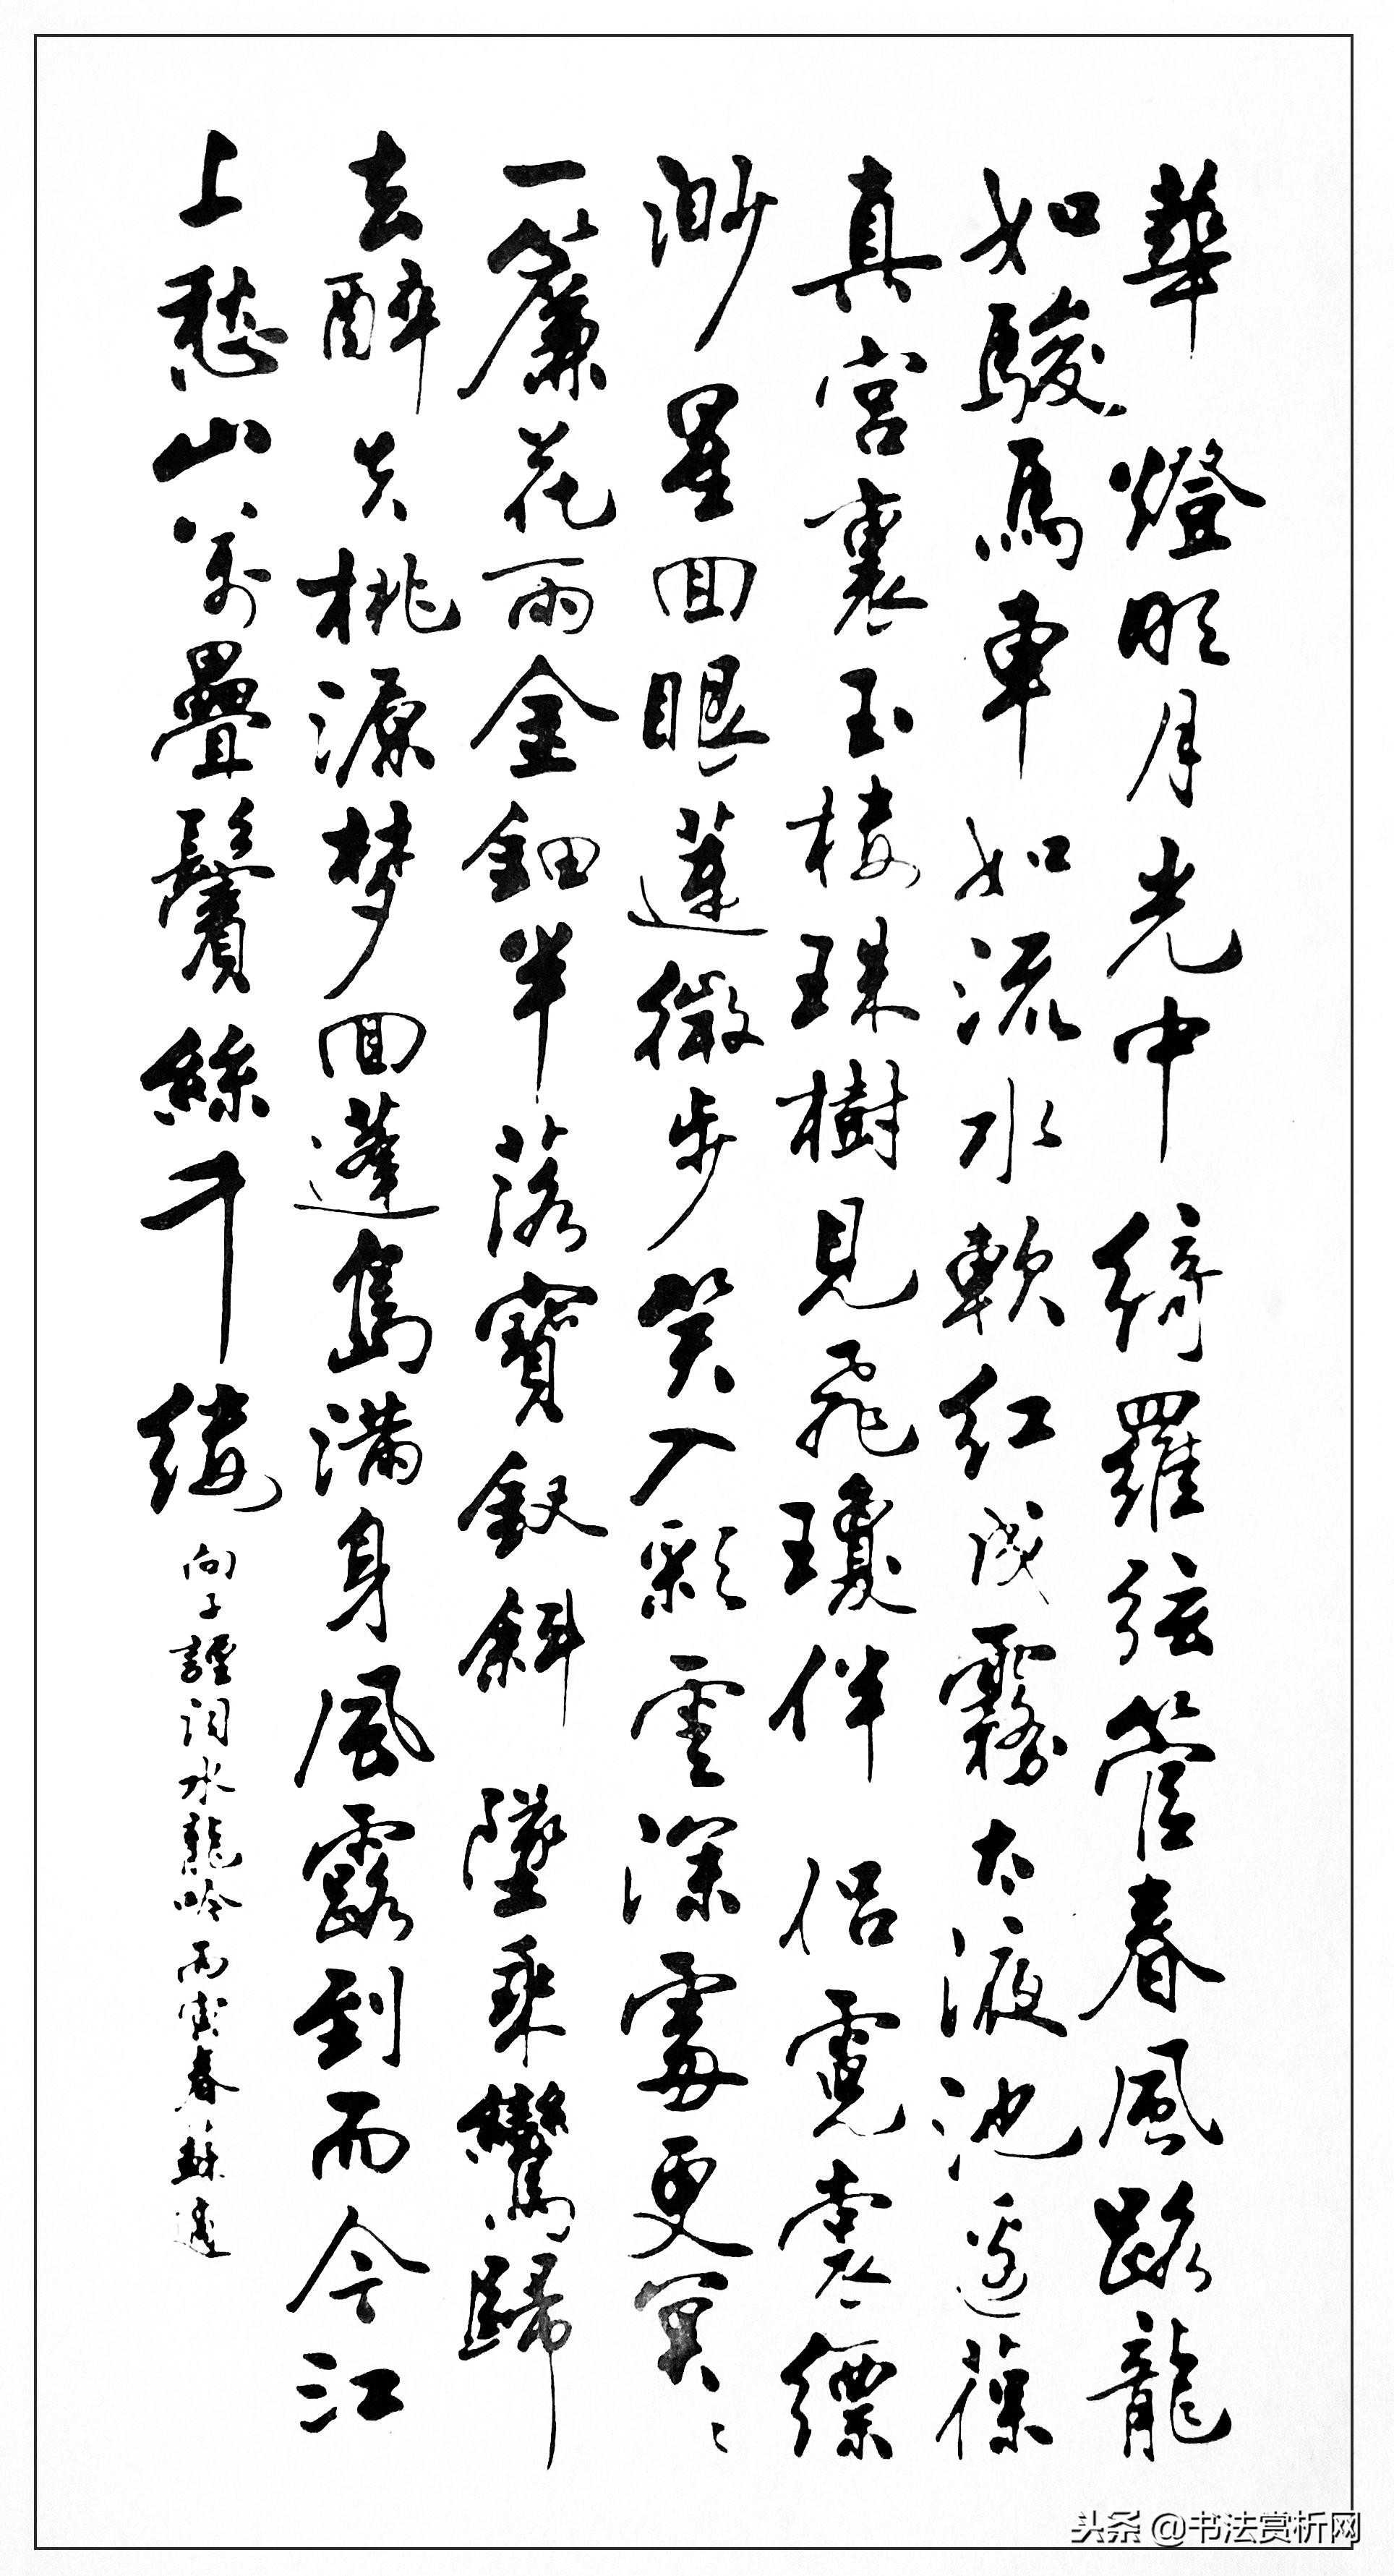 華燈明月光中綺羅弦管春風路龍
如駿馬車如流水軟紅成霧太液池邊葆
真宮裏玉楼珠樹見飛瓊伴侶霓裳縹
渺星囬眼蓮微步笑入彩雲深處更冥冥
一簾花雨金鈿半落寶釵斜墜乘鸞歸
去醉失桃源梦囬蓬島滿身風露到而今江
上愁山萬疊鬢絲千縷
向子諲詞水龍吟丙寅春蘇適
头条 @书法赏析网